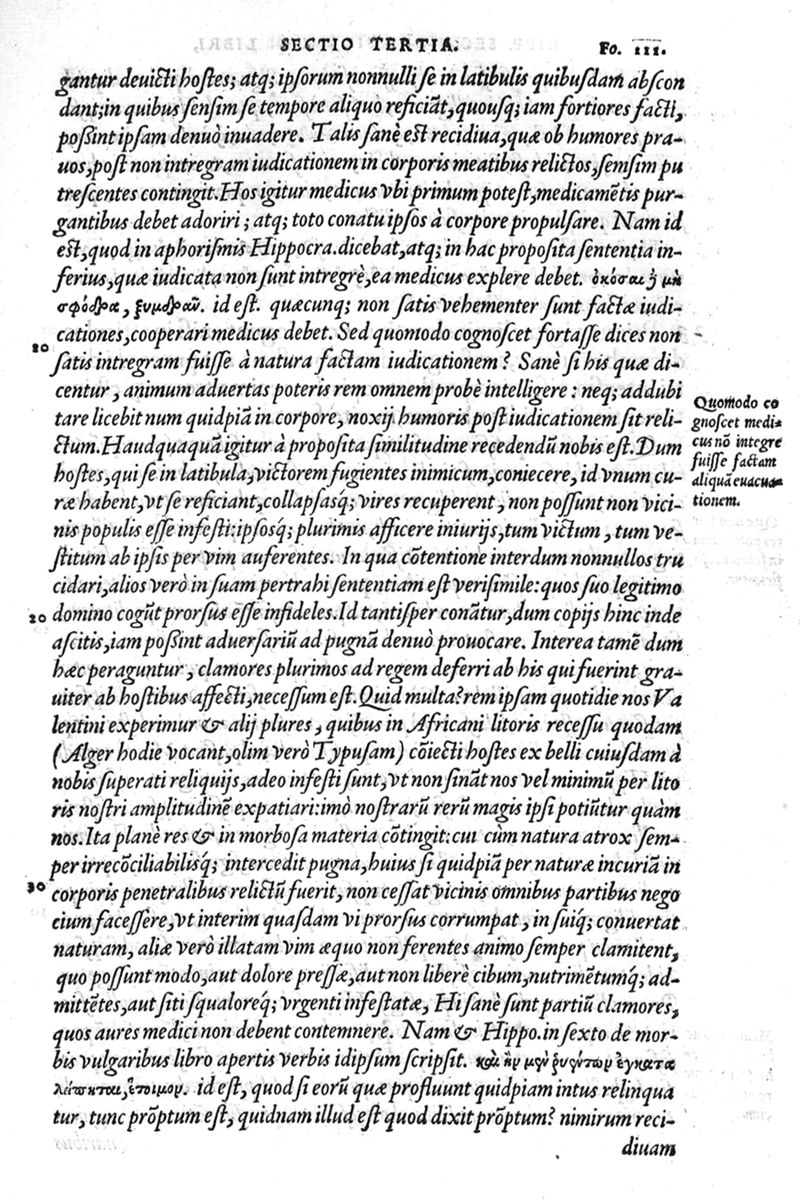 SECTIO TERTIA. Fo. III.
gantur deuicti hostes; atq; ipsorum nonnulli se in latibulis quibusdam abscon
dant; in quibus sensim se tempore aliquò reficiāt, quousq; iam fortiores facti,
possint ipsam denuò inuadere. Talis sanè est recidiua, quæ ob humores pra-
uos, post non intregram iudicationem in corporis meatibus relictos, sensim pu
trescentes contingit. Hos igitur medicus vbi primum potest, medicamētis pur-
gantibus debet adoriri; atq; toto conatu ipsos à corpore propulsare. Nam id
est, quod in aphorismis Hippocra. dicebat, atq; in hac proposita sententia in-
ferius, quæ iudicata non sunt intregrè, ea medicus explere debet. ὁκόσαι ἢ μὴ
σφόδρα, ξυμδρᾶν. id est. quæcunq; non satis vehementer sunt factæ iudi-
10 cationes, cooperari medicus debet. Sed quomodo cognoscet fortasse dices non
satis intregram fuisse à natura factam iudicationem? Sanè si his quæ di-
centur, animum aduertas poteris rem omnem probè intelligere: neq; addubi
tare licebit num quidpiā in corpore, noxij humoris post iudicationem sit reli-
ctum. Haudquaquā igitur à proposita similitudine recedendū nobis est. Dum
hostes, qui se in latibula, victorem fugientes inimicum, coniecere, id vnum cu-
ræ habent, vt se reficiant, collapsasq́; vires recuperent, non possunt non vici-
nis populis esse infesti: ipsosq́; plurimis afficere iniurijs, tum victum, tum ve-
stitum ab ipsis per vim auferentes. In qua cōtentione interdum nonnullos tru
cidari, alios verò in suam pertrahi sententiam est verisimile: quos suo legitimo
20 domino cogūt prorsus esse infideles. Id tantisper conātur, dum copijs hinc inde
ascitis, iam possint aduersariū ad pugnā denuò prouocare. Interea tamē dum
hæc peraguntur, clamores plurimos ad regem deferri ab his qui fuerint gra-
uiter ab hostibus affecti, necessum est. Quid multa? rem ipsam quotidie nos Va
lentini experimur & alij plures, quibus in Africani litoris recessu quodam
(Alger hodie vocant, olim verò Typusam) cōiecti hostes ex belli cuiusdam à
nobis superati reliquijs, adeo infesti sunt, vt non sināt nos vel minimū per lito
ris nostri amplitudinē expatiari: imò nostrarū rerū magis ipsi potiūtur quàm
nos. Ita planè res & in morbosa materia cōtingit: cui cùm natura atrox sem-
per irrecōciliabilisq́; intercedit pugna, huius si quidpiā per naturæ incuriā in
30 corporis penetralibus relictū fuerit, non cessat vicinis omnibus partibus nego
cium facessere, vt interim quasdam vi prorsus corrumpat, in suiq́; conuertat
naturam, aliæ verò illatam vim æquo non ferentes animo semper clamitent,
quo possunt modo, aut dolore pressæ, aut non liberè cibum, nutrimētumq́; ad-
mittētes, aut siti squaloreq́; vrgenti infestatæ, Hi sanè sunt partiū clamores,
quos aures medici non debent contemnere. Nam & Hippo. in sexto de mor-
bis vulgaribus libro apertis verbis idipsum scripsit. καὶ ἢν μὴν ῥυέντων ἐγκατα
λείπηται, ἕτοιμον. id est, quod si eorū quæ profluunt quidpiam intus relinqua
tur, tunc prōptum est, quidnam illud est quod dixit prōptum? nimirum reci-
diuam
Quomodo co
gnoscet medi-
cus nō integre
fuisse factam
aliquā euacua-
tionem.